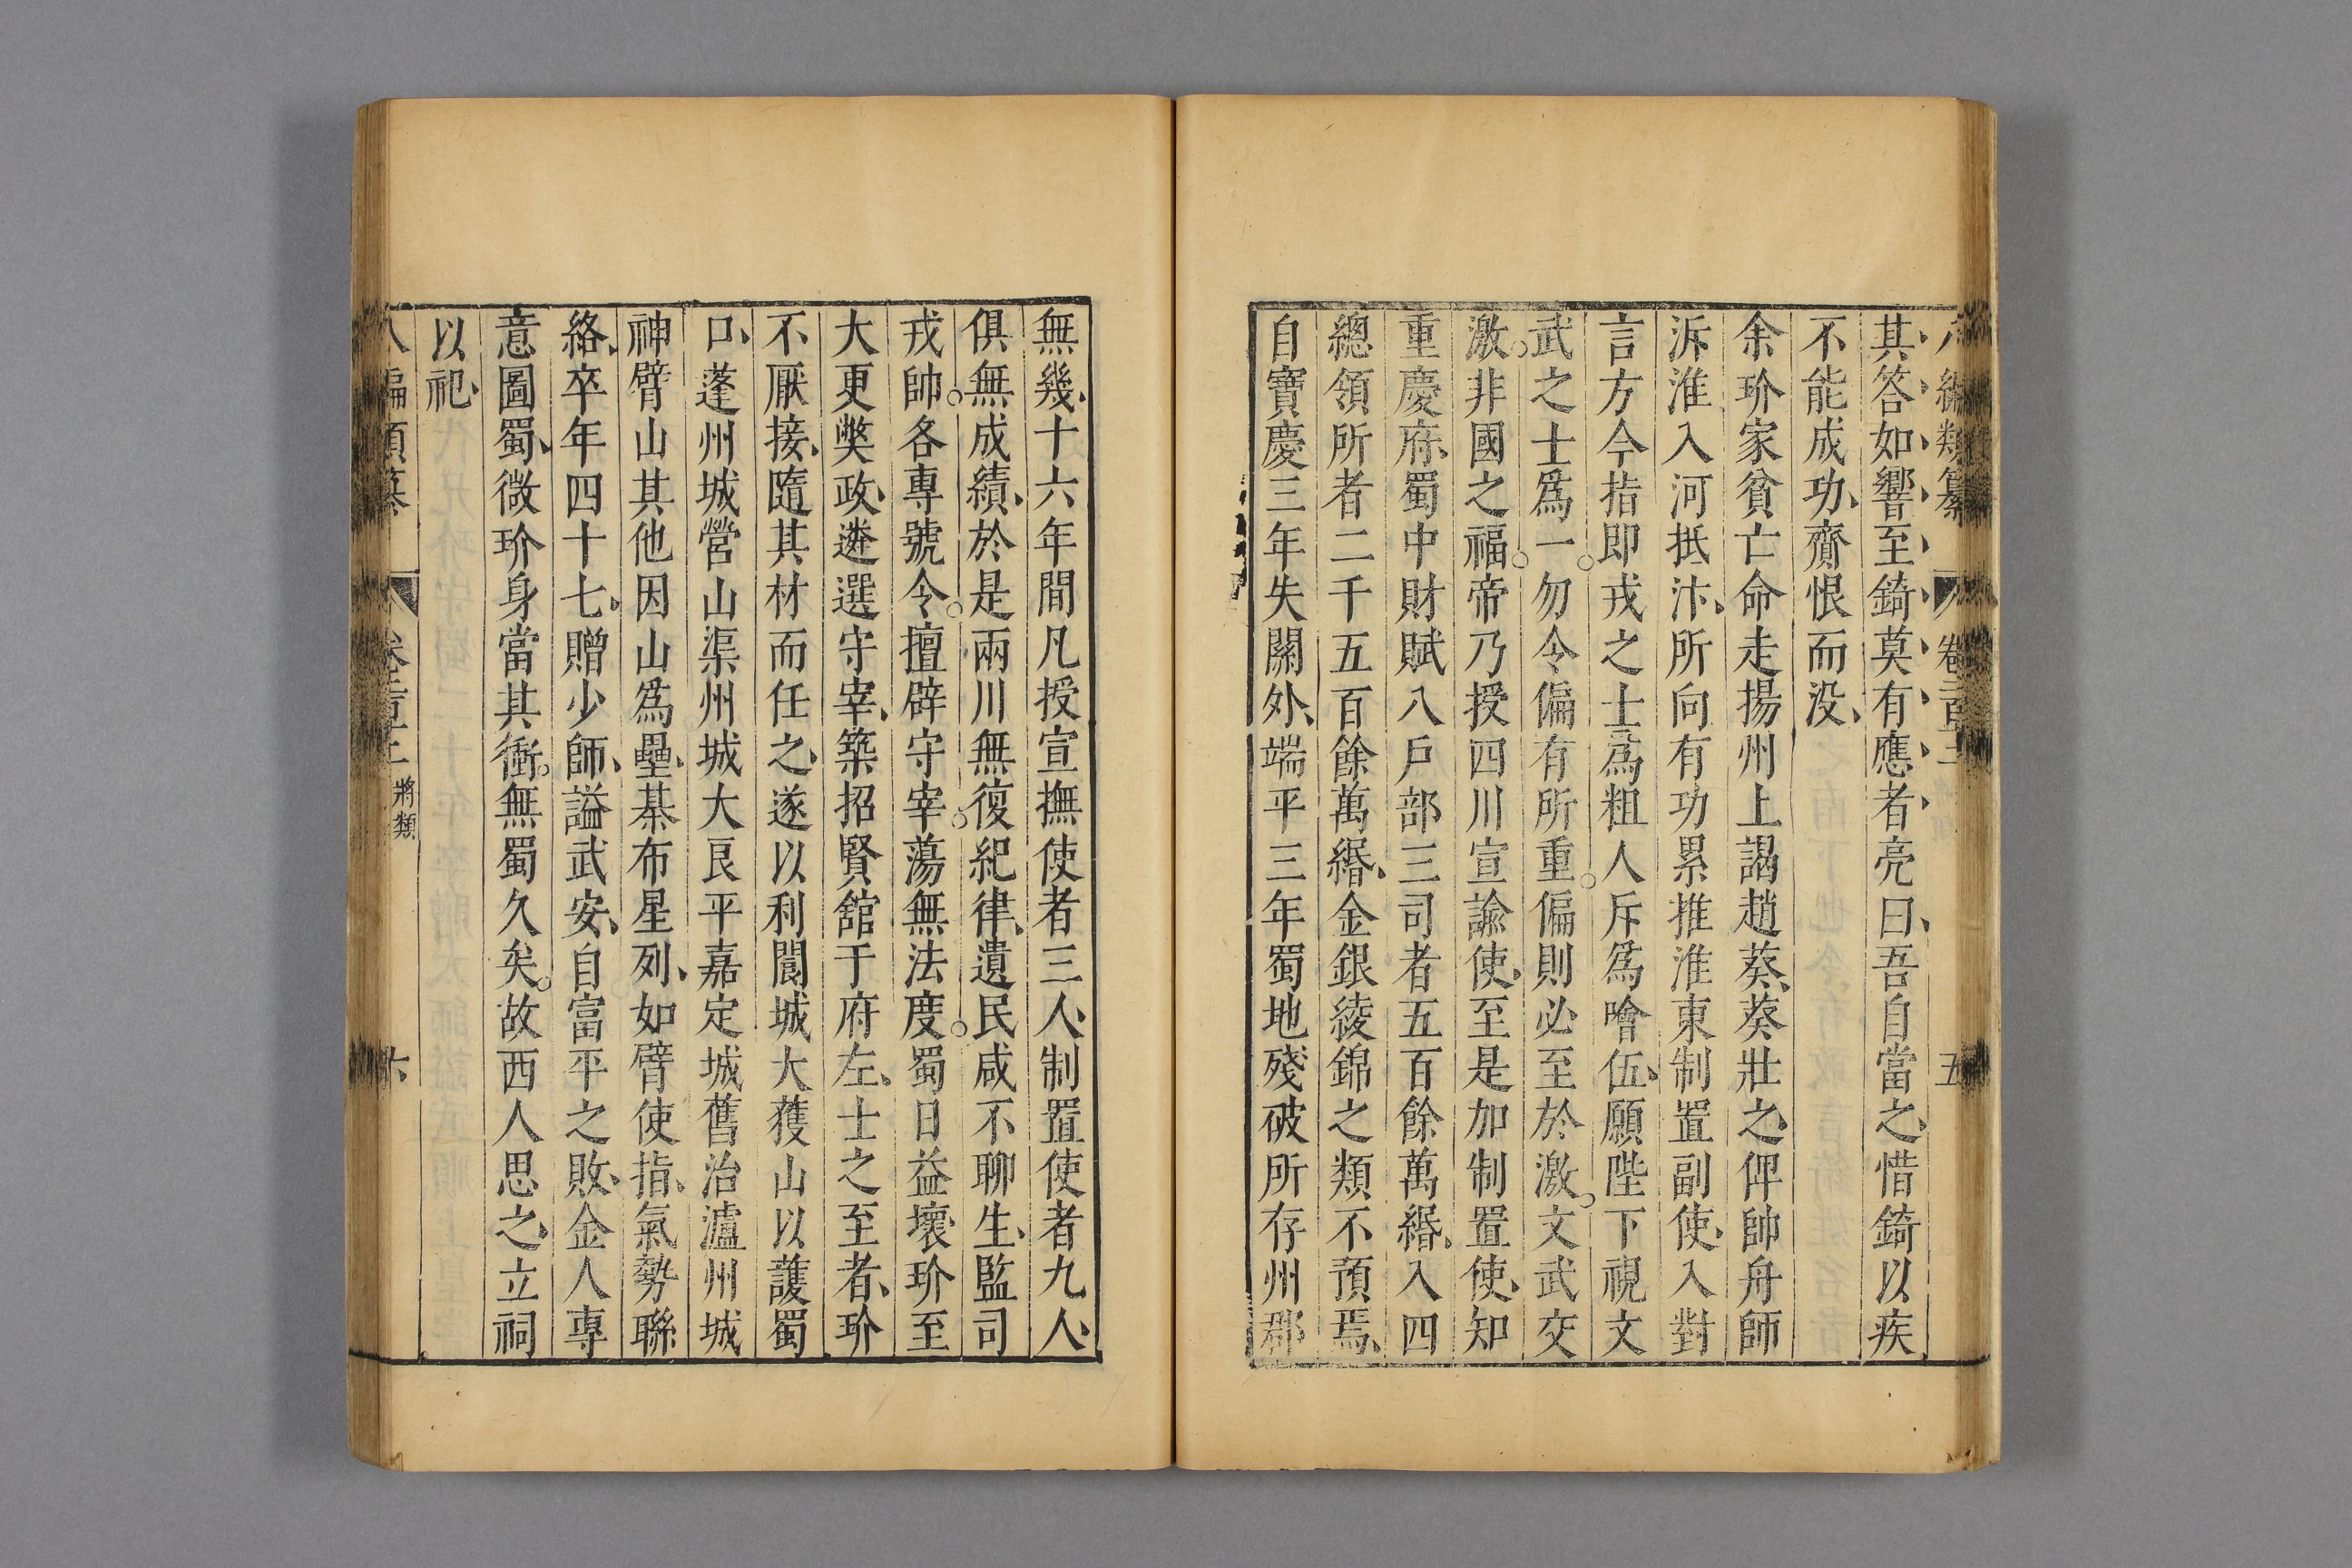 八編類纂 卷二百十二 五
其答如響至錡莫有應者亮曰吾自當之惜錡以疾
不能成功齎恨而没
余玠家貧亡命走揚州上謁趙葵葵壯之俾帥舟師
泝淮入河抵汴所向有功累推淮東制置副使入對
言方今指即戎之士爲粗人斥爲噲伍願陛下視文
武之士爲一勿令偏有所重偏則必至於激文武交
激非國之福帝乃授四川宣諭使至是加制置使知
重慶府蜀中財賦八戶部三司者五百餘萬緡入四
總領所者二千五百餘萬緡金銀綾錦之類不預焉
自寶慶三年失關外端平三年蜀地殘破所存州郡
無幾十六年間凡授宣撫使者三人制置使者九人
俱無成績於是兩川無復紀律遺民咸不聊生監司
戎帥各專號令擅辟守宰蕩無法度蜀日益壞玠至
大更獘政遴選守宰築招賢舘于府左士之至者玠
不厭接隨其材而任之遂以利閬城大獲山以護蜀
口蓬州城營山渠州城大良平嘉定城舊治瀘州城
神臂山其他因山爲壘棊布星列如臂使指氣勢聯
絡卒年四十七贈少師謚武安自富平之敗金人專
意圖蜀微玠身當其衝無蜀久矣故西人思之立祠
以祀
八編類纂 將類 六